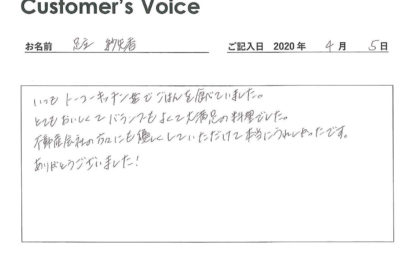 Customer's Voice
お名前 ご記入日 2020 年 4 月 5 日
いつも トーコーキッチン さんでごはんを食べていました。
とてもおいしくてバランスもよくて大満足の料理でした。
不動産会社の方々にも優しくしていただけて本当にうれしかったです。
ありがとうございました！